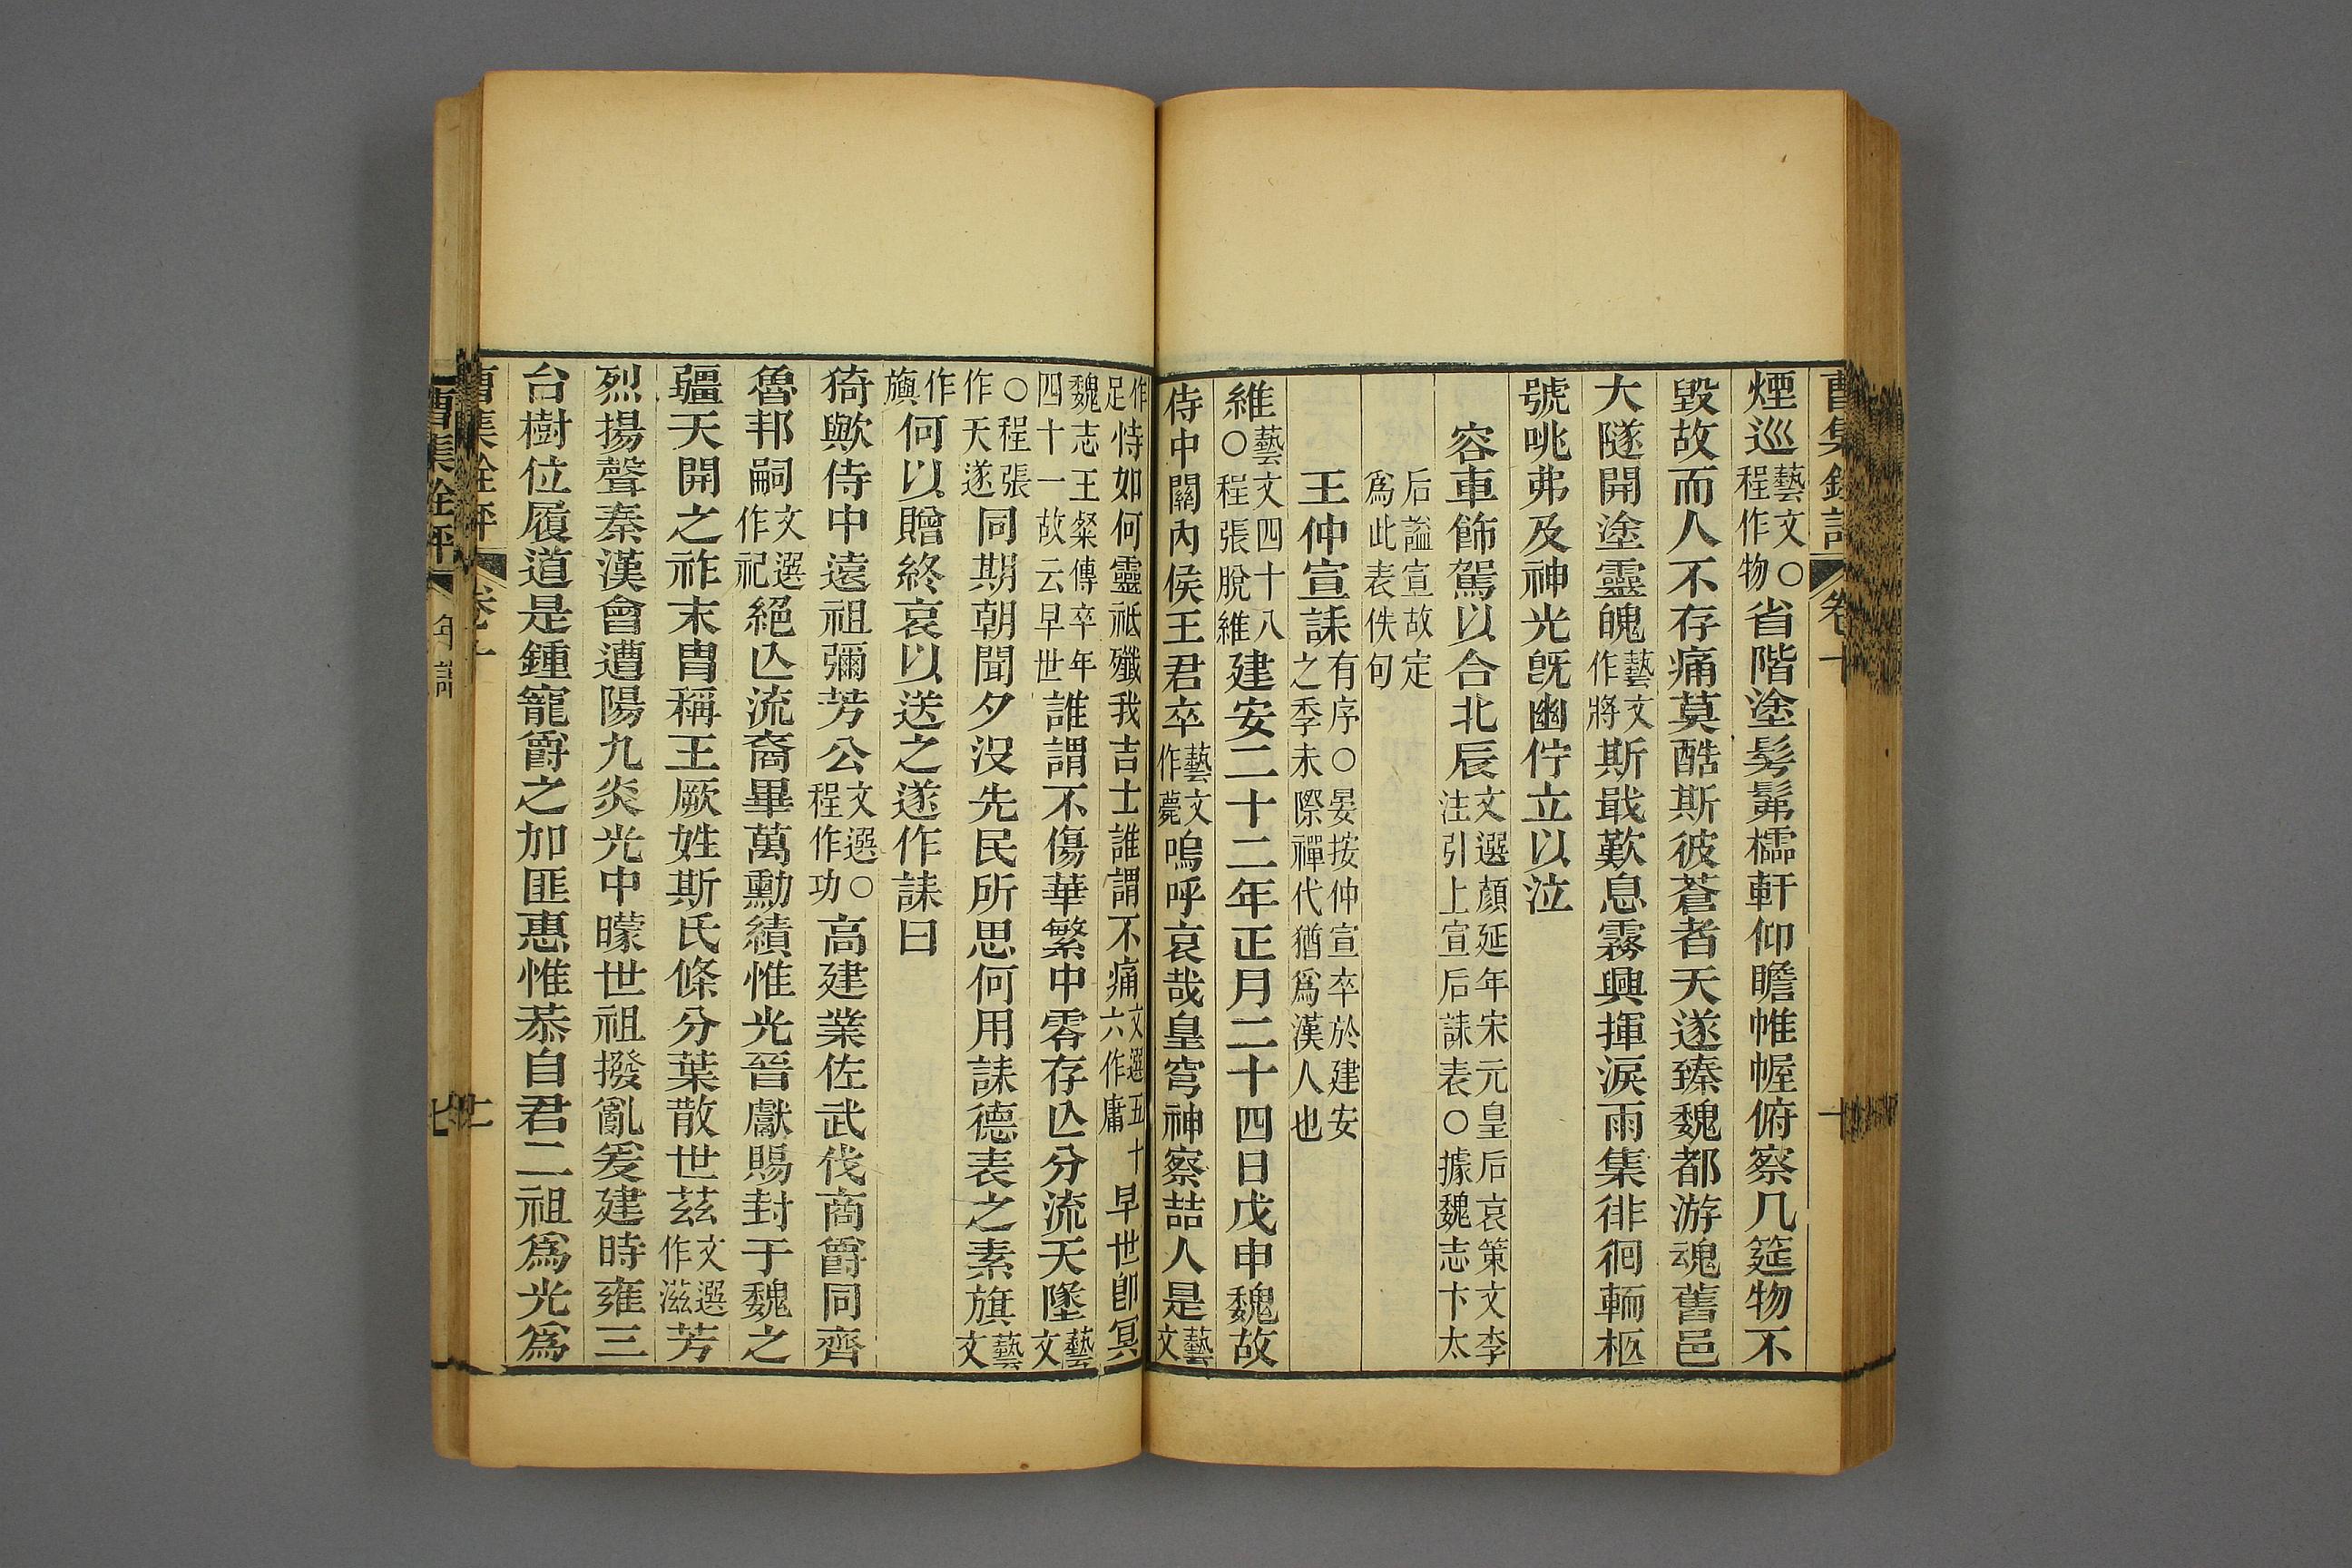 煙巡藝文○程作物省階塗髣髴櫺軒仰瞻帷幄俯察几筵物不
毀故而人不存痛莫酷斯彼蒼者天遂臻魏都游魂舊邑
大隧開塗靈魄藝文作將斯戢歎息霧興揮淚雨集徘徊輀柩
號咷弗及神光旣幽佇立以泣
容車飾駕以合北辰文選顏延年宋元皇后哀策文李注引上宣后誄表○據魏志卞太
后謚宣故定爲此表佚句
王仲宣誄有序○晏按仲宣卒於建安之季未際禪代猶爲漢人也
維藝文四十八○程張脫維建安二十二年正月二十四日戊申魏故
侍中關內侯王君卒藝文作薨嗚呼哀哉皇穹神察喆人是藝文
作足恃如何靈祇殲我吉士誰謂不痛文選五十六作庸早世卽冥
魏志王粲傳卒年四十一故云早世誰謂不傷華繁中零存亾分流天墜藝文
○程張作天遂同期朝聞夕沒先民所思何用誄德表之素旗藝文
作旟何以贈終哀以送之遂作誄曰
猗歟侍中遠祖彌芳公文選○程作功高建業佐武伐商爵同齊
魯邦嗣文選作祀絕亾流裔畢萬勳績惟光晉獻賜封于魏之
疆天開之祚末冑稱王厥姓斯氏條分葉散世茲文選作滋芳
烈揚聲秦漢會遭陽九炎光中矇世祖撥亂爰建時雍三
台樹位履道是鍾寵爵之加匪惠惟恭自君二祖爲光爲
曹集銓評
卷十
曹集銓評
年譜